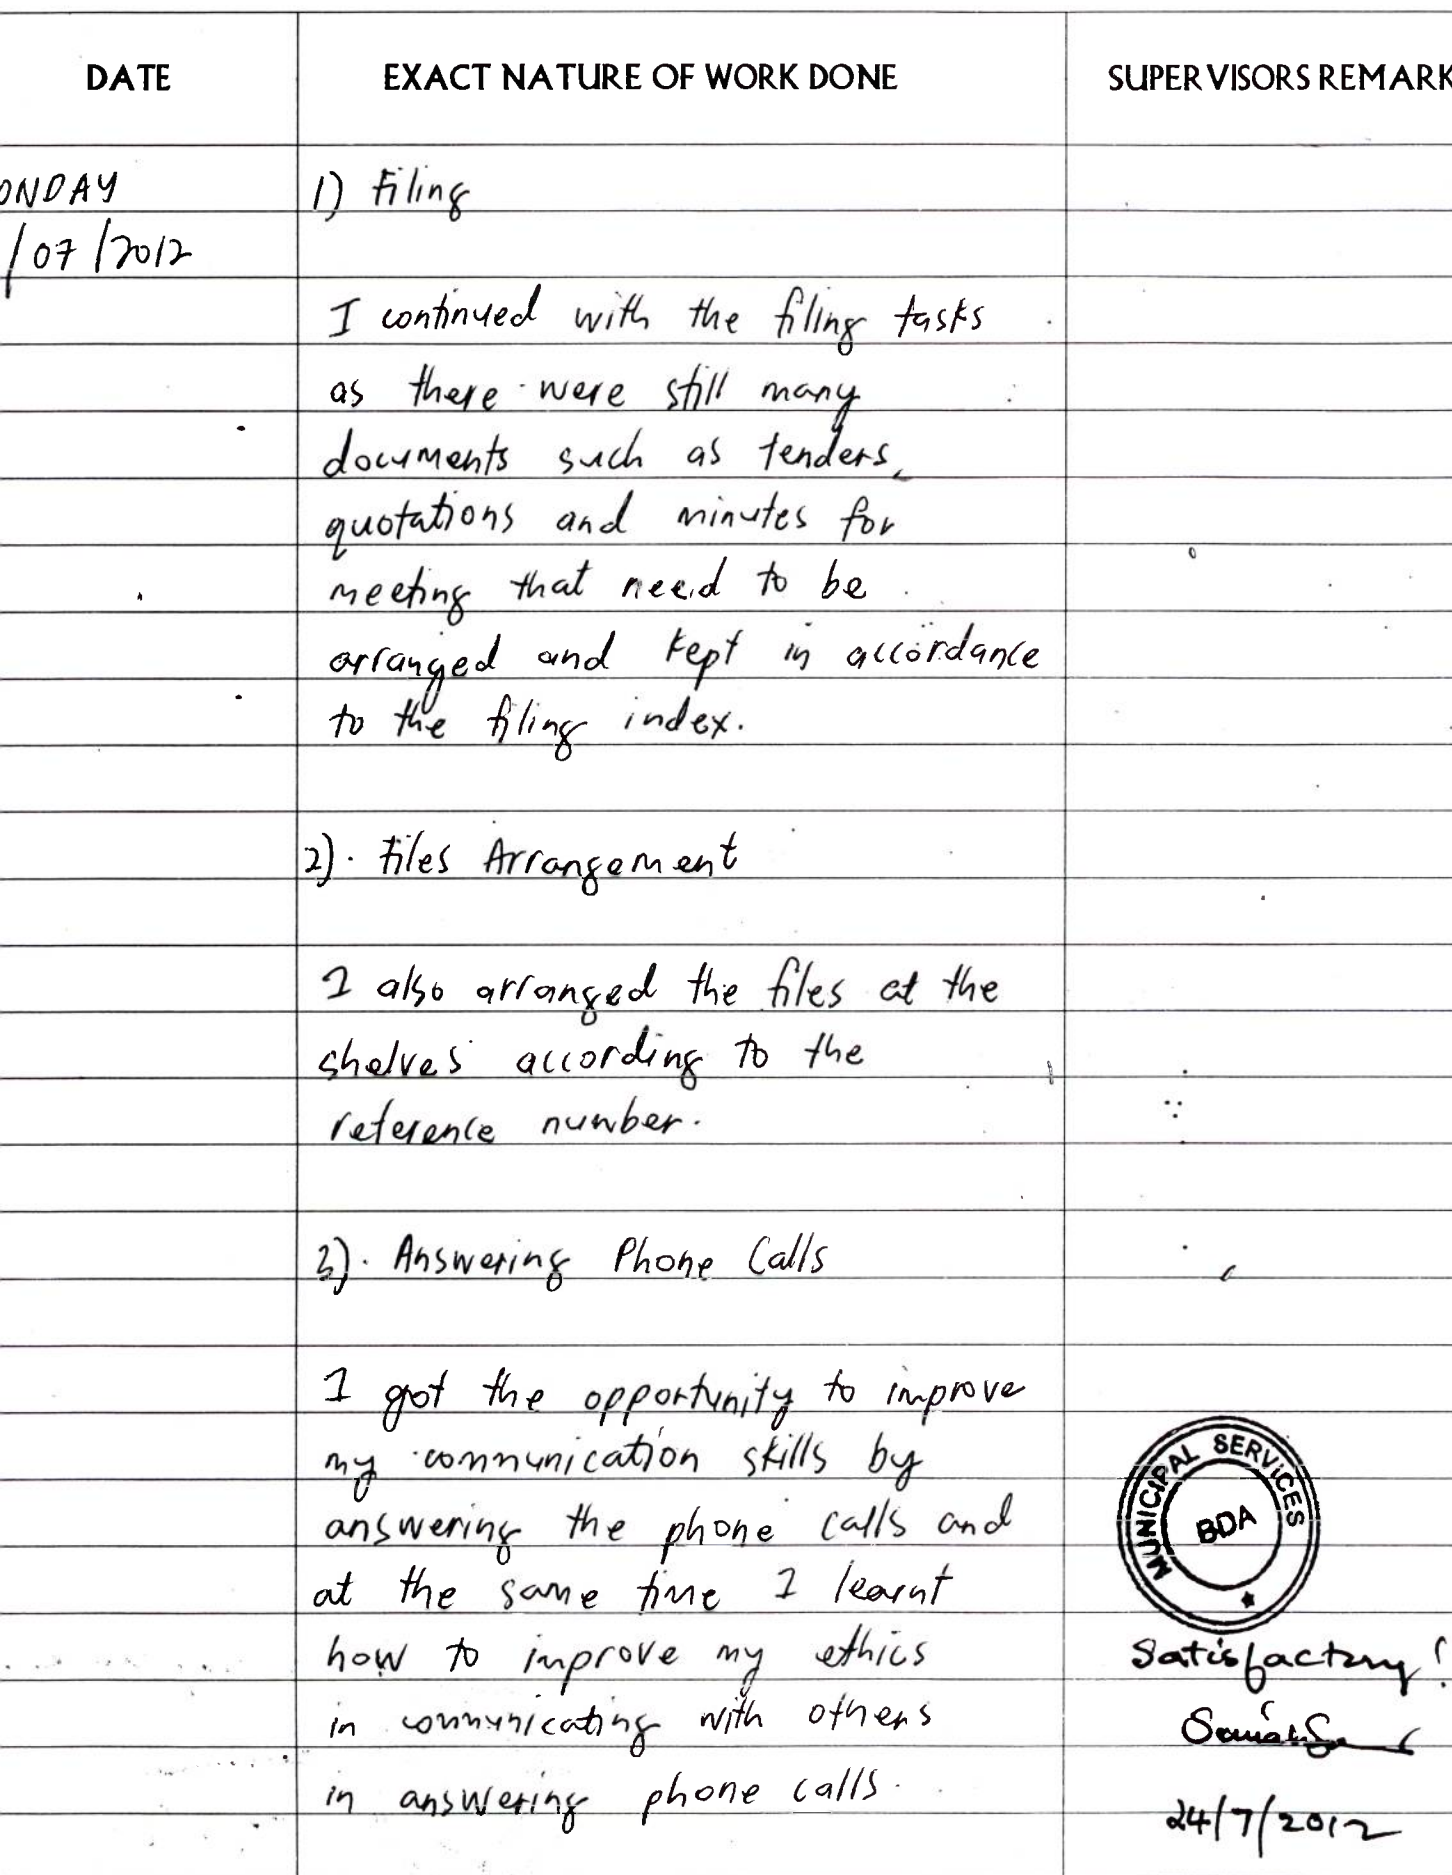 DATE EXACT NATURE OF WORK DONE SUPERVISORS REMARK
ONDAY 1) Filing
/07/2012
I continued with the filing tasks
as there were still many
documents such as tenders,
quotations and minutes for
meeting that need to be
arranged and kept in accordance
to the filing index.
2). Files Arrangement
I also arranged the files at the
shelves according to the
reference number.
3). Answering Phone Calls
I got the opportunity to improve
my communication skills by
answering the phone calls and
at the same time I learnt
how to improve my ethics
in communicating with others
in answering phone calls.
MUNICIPAL SERVICES
BDA
Satisfactory!
24/7/2012